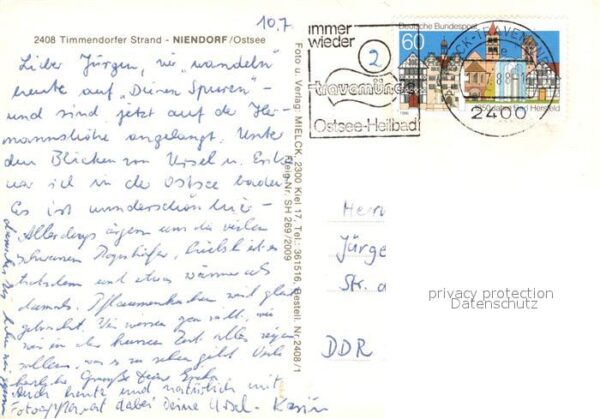 10.7.
2408 Timmendorfer Strand - NIENDORF/Ostsee
Lieber Jürgen, wir "wandeln"
heute auf "Deinen Spuren" -
und sind jetzt auf der Her-
mannshöhe angelangt. Unter
den Blicken von Ursel u.
war ich in der Ostsee baden.
Es ist wunderschön hier -
Allerdings ärgern uns die vielen
schwarzen
trotzdem und etwas wärmer als
damals. Pflaumenkuchen wird gleich
gebracht. Wir wissen gar nicht, wie
wir in der kurzen Zeit alles
sollen, was es zu sehen gibt. Viele
herzliche Grüße Deine
Auch heute und natürlich mit
Fotoapparat dabei Deine Ursel - Karin
Foto u. Verlag MIELCK, 2300 Kiel 17, Tel.: 361516, Bestell. Nr. 2408/1
Freig-Nr. SH 269/2009
immer
wieder
2
travemünde
Ostsee-Heilbad
Deutsche Bundespost
60
1250 Jahre Bad Hersfeld
LÜBECK-TRAVEMÜNDE
2400
Herrn
Jürge
Str. d
DDR
privacy protection
Datenschutz